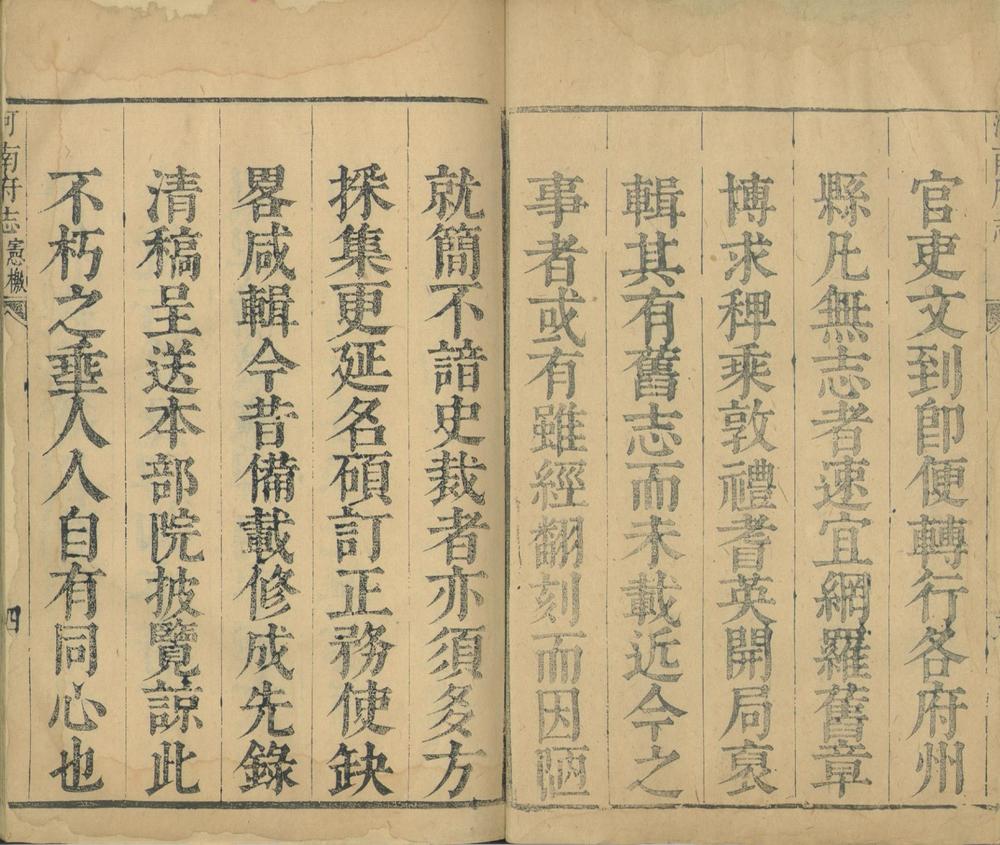 官吏文到即便轉行各府州
縣凡無志者速宜網羅舊章
博求稗乘敦禮耆英開局裒
輯其有舊志而未載近今之
事者或有雖經翻刻而因陋
就簡不諳史裁者亦須多方
採集更延名碩訂正務使缺
畧咸輯今昔備載修成先錄
清稿呈送本部院披覽諒此
不朽之埀人人自有同心也
河南府志 憲檄 四